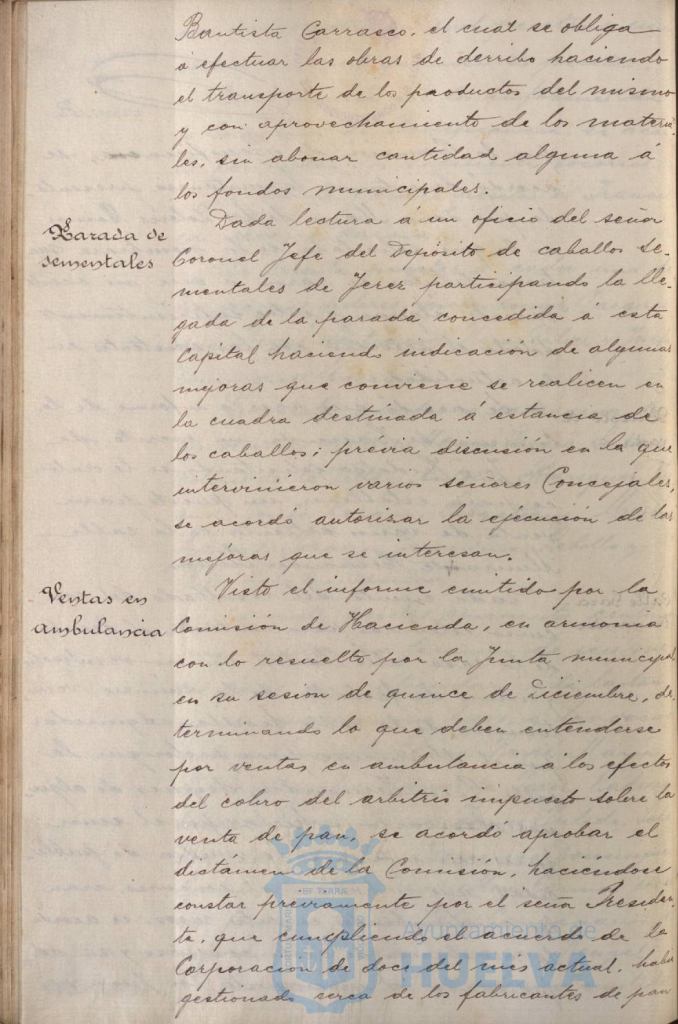 Bautista Carrasco, el cual se obliga
á efectuar las obras de derribo haciendo
el transporte de los productos del mismo
y con aprovechamiento de los materia-
les, sin abonar cantidad alguna á
los fondos municipales.
Parada de
sementales
Dada lectura á un oficio del señor
Coronel Jefe del Depósito de caballos se-
mentales de Jerez participando la lle-
gada de la parada concedida á esta
Capital haciendo indicación de algunas
mejoras que conviene se realicen en
la cuadra destinada á estancia de
los caballos; prévia discusión en la que
intervinieron varios señores Concejales,
se acordó autorizar la ejecución de las
mejoras que se interesan.
Ventas en
ambulancia
Visto el informe emitido por la
Comisión de Hacienda, en armonía
con lo resuelto por la Junta municipal
en su sesion de quince de Diciembre, de-
terminando lo que deben entenderse
por ventas en ambulancia á los efectos
del cobro del arbitrio impuesto sobre la
venta de pan, se acordó aprobar el
dictámen de la Comisión, haciéndose
constar previamente por el señor Presiden-
te, que cumpliendo el acuerdo de la
Corporación de doce del mes actual, había
gestionado cerca de los fabricantes de pan
Ayuntamiento de
HUELVA